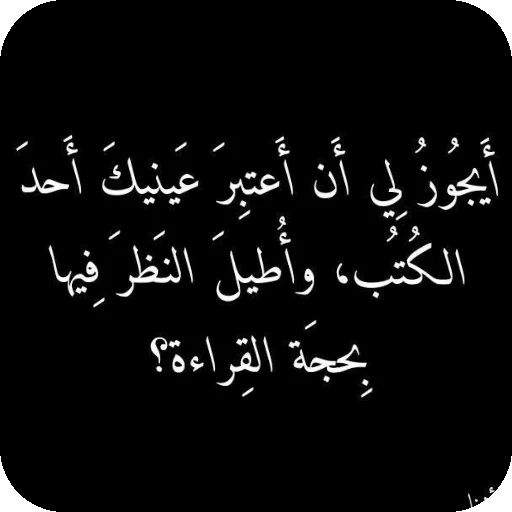 أَيجُوزُ لِي أَن أَعتبِرَ عَينيكَ أَحدَ
الكُتُب، وأُطيلَ النَظرَ فِيها
بِحجَة القِراءة؟